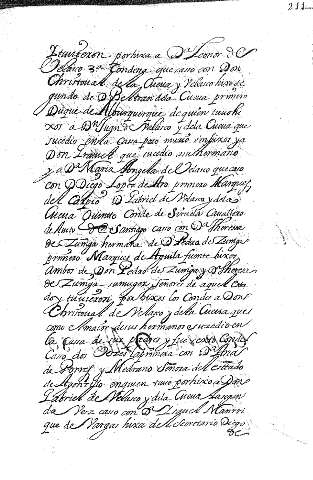 211
Ituvieron por hixa a Dª Leonor de
Velasco 3ª Condesa que caso con Don
Christoual de la Cueva y Velasco hixo de
gundo de D Beltran de la Cueva primero
Duque de Alburquerque de quien tuvo hi
xos a Dn Juan de Velasco y de la Cueva que
sucedio en la Casa paso murio sin hixos ya
Don que sucedio a su hermano
y a Dª Maria Angela de Velasco que caso
con D Diego Lopez de Aro primero Marques
del Carpio D Gabriel de Velasco y de la
Cueva Quinto Conde de Siruela Cavallero
de Santiago caso con Dª Theresa
de Zuñiga hermana de D Pedro de Zuñiga
primero Marques de Aguila fuente hixos
Ambos de Don Pedro de Zuñiga y Dª Theresa
de Zuñiga su muger Señores de aquel Esta
do y tuvieron por hixos los Condes a Don
Christoual de Velasco y de la Cueva que
como Amaior de sus hermanos sucedio en
la Casa de sus Padres y fue sexto Conde
Caso dos Veces la primera con Dª Ana
de Porres y Medrano Señora del estado
de en quien tuvo por hixo a Don
Gabriel de Velasco y de la Cueva
da Vez caso con Dª Manrri
que de Vargas hixa del Secretario Diego
de